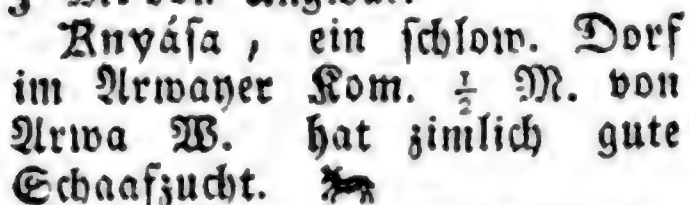 Knyása, ein schlow. Dorf
im Arwaner Kom. ½ M. von
Arwa W. hat zimlich gute
Schaafzucht.